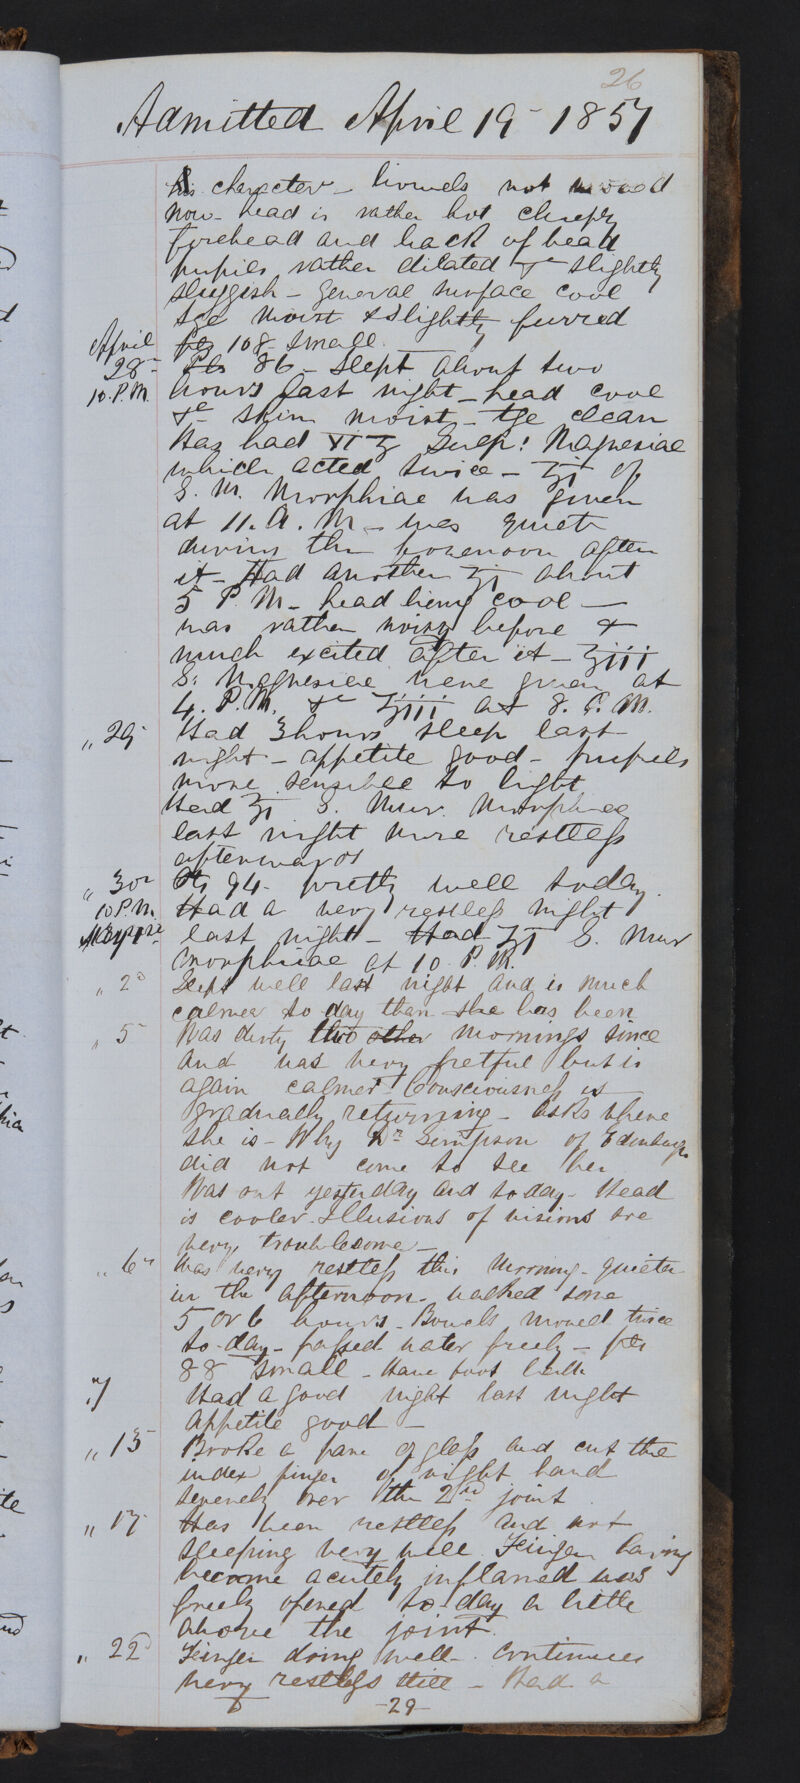 26
Admitted April 19 - 1857
his character - bowels not moved
now - head is rather hot chiefly
forehead and back of head
pupils rather dilated & slightly
sluggish - general surface cool
tge moist & slightly furred
pls 108 small.
April 28th 10. P.M. Pls 86 - Slept about two
hours last night - head cool
& skin moist - tge clean
Has had vi ʒ Sulp: Magnesiae
which acted twice - ʒi of
S. M. Morphiae was given
at 11. A. M - was quiet
during the forenoon after
it - Had another ʒi about
5 P. M - head being cool -
was rather noisy before &
much excited after it - ʒiii
S. Magnesiae were given at
4. P. M. & ʒiii at 8. P. M.
" 29 Had 3 hours sleep last
night - appetite good - pupils
more sensible to light
Had ʒi S. Mur. Morphiae
last night more restless
afterwards
" 30th Pls 94 - pretty well today.
10 P.M. Had a very restless night
last night - Had ʒi S. Mur
Morphiae at 10 P. M.
" 2d Slept well last night and is much
calmer to day than she has been
" 5 Was dirty two other mornings since
and was very fretful but is
again calmer - Consciousness is
gradually returning - Asks where
she is - Why Dr Simpson of Edinburgh
did not come to see her
Was out yesterday and today - Head
is cooler - Illusions of visions are
very troublesome -
" 6th Was very restless this morning - quieter
in the afternoon - walked some
5 or 6 hours - Bowels moved twice
to-day - passed water freely - pls
88 small - Have foot bath
" 7 Had a good night last night
appetite good -
" 13 Broke a pane of glass and cut the
index finger of right hand
severely over the 2nd joint
" 17 Has been restless and not
sleeping very well. Finger having
become acutely inflamed was
freely opened to-day a little
above the joint.
" 22d Finger doing well - continues
very restless still - Had a
-29-